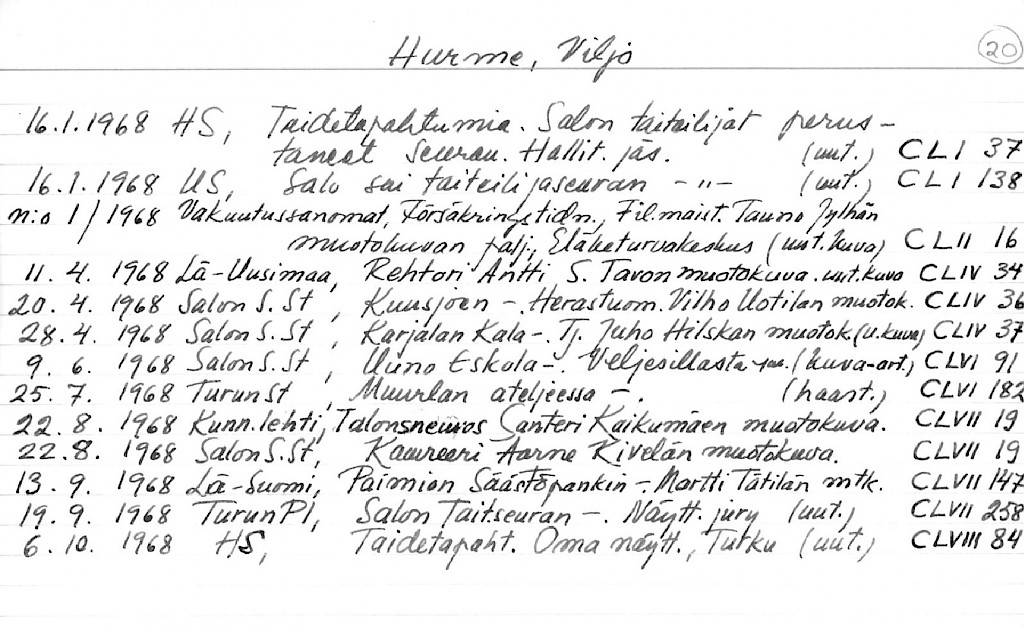 Hurme, Viljo 20
16.1.1968 HS, Taidetapahtumia. Salon taiteilijat perus-
taneet seuran. Hallit. jäs. (uut.) CLI 37
16.1.1968 US, Salo sai taiteilijaseuran -"- (uut.) CLI 138
n:o 1/1968 Vakuutussanomat, Försäkringstidn., Fil.maist. Tauno Jylhän
muotokuvan palj., Eläketurvakeskus (uut.kuva) CLII 16
11. 4. 1968 Lä-Uusimaa, Rehtori Antti S. Tavon muotokuva. uut.kuva CLIV 34
20. 4. 1968 Salon S. St, Kuusjoen -. Herastuom. Vilho Uotilan muotok. CLIV 36
28. 4. 1968 Salon S. St, Karjalan Kala -. Tj. Juho Hilskan muotok. (u.kuva) CLIV 37
9. 6. 1968 Salon S. St, Uuno Eskola -. Veljesillasta (kuva-art.) CLVI 91
25. 7. 1968 Turun St, Muurlan ateljeessa -. (haast.) CLVI 182
22. 8. 1968 Kunn.lehti, Talonsneuvos Santeri Kaikumäen muotokuva. CLVII 19
22. 8. 1968 Salon S. St, Kamreeri Aarne Kivelän muotokuva. CLVII 19
13. 9. 1968 Lä-Suomi, Paimion Säästöpankin -. Martti Tätilän mtk. CLVII 147
19. 9. 1968 Turun Pl, Salon Tait.seuran -. Näytt. jury (uut.) CLVII 258
6. 10. 1968 HS, Taidetapaht. Oma näytt., Turku (uut.) CLVIII 84